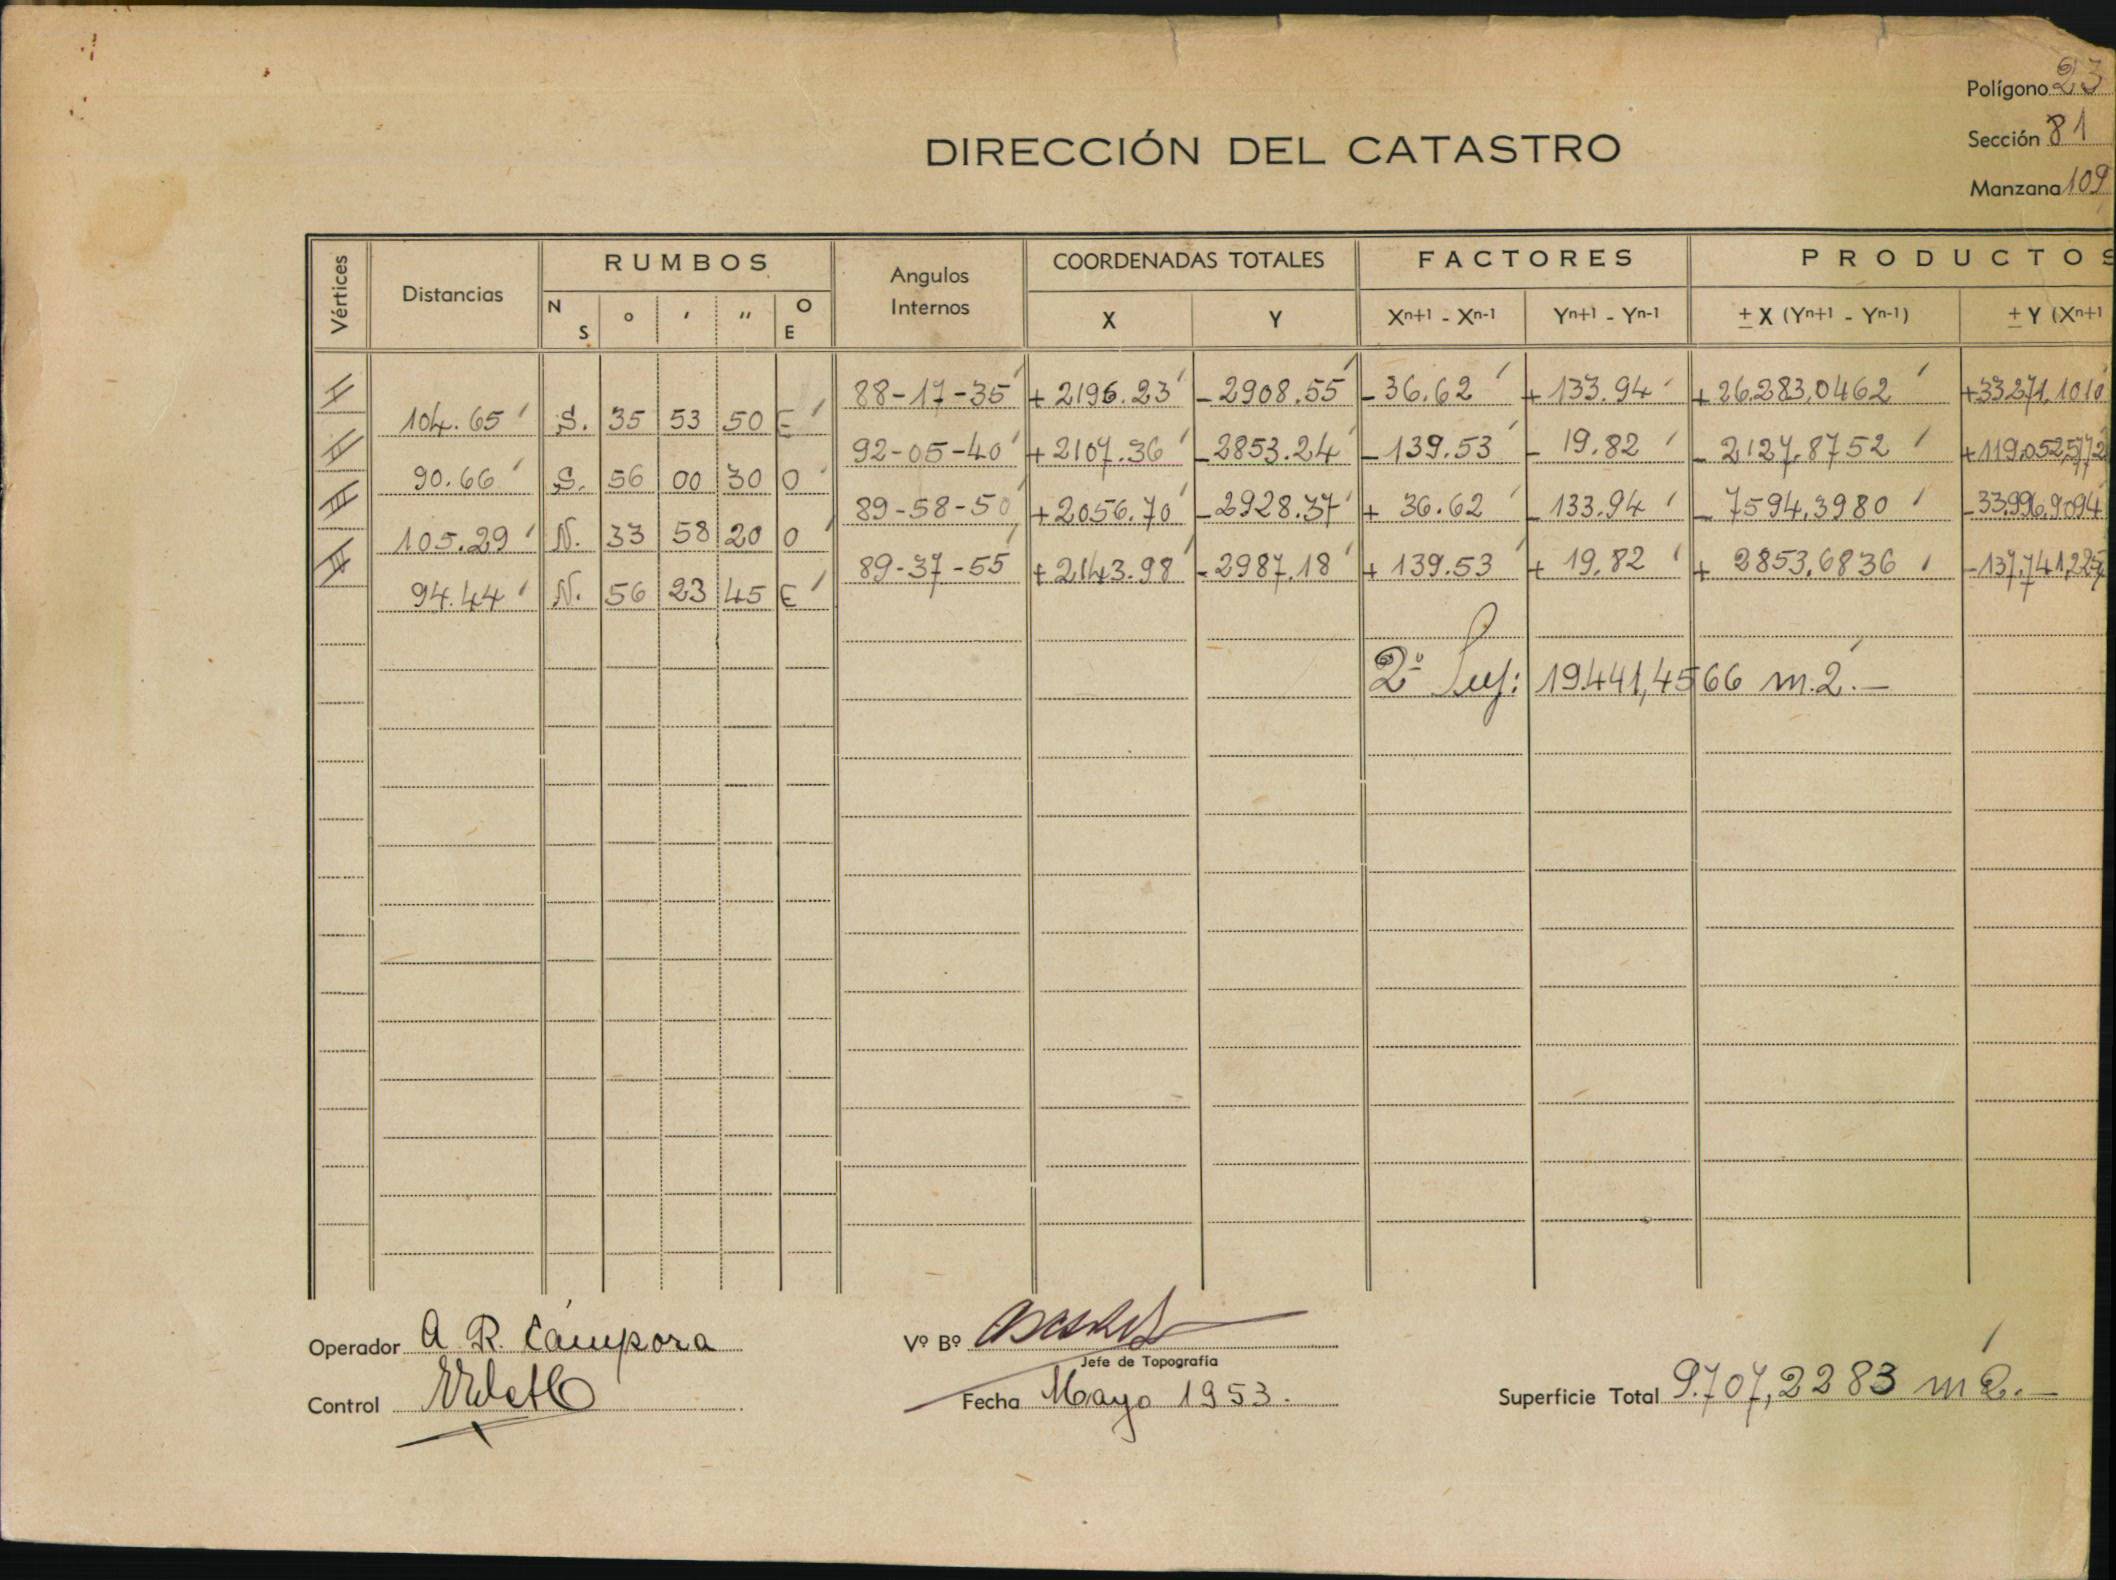 Polígono 23
Sección 81
Manzana 109
DIRECCIÓN DEL CATASTRO
Vértices Distancias RUMBOS Angulos Internos COORDENADAS TOTALES FACTORES PRODUCTOS
N S ° ′ ″ O E X Y Xn+1 - Xn-1 Yn+1 - Yn-1 ± X (Yn+1 - Yn-1) ± Y (Xn+1
88-17-35 +2196.23 -2908.55 -36.62 +133.94 +26,283,0462 +33271,1010
104.65 S. 35 53 50 E
92-05-40 +2107.36 -2853.24 -139.53 -19.82 -2127,8752 +119.052,5772
90.66 S. 56 00 30 O
89-58-50 +2056.70 -2928.37 +36.62 -133.94 -7594,3980 -33.996,9094
105.29 N. 33 58 20 O
89-37-55 +2143.98 -2987.18 +139.53 +19.82 +2853,6836 -137.741,225
94.44 N. 56 23 45 E
19.441,4566 m.2.—
Operador A. R. Cámpora Vº Bº
Jefe de Topografía
Control Fecha Mayo 1953. Superficie Total 9.707,2283 m2.—